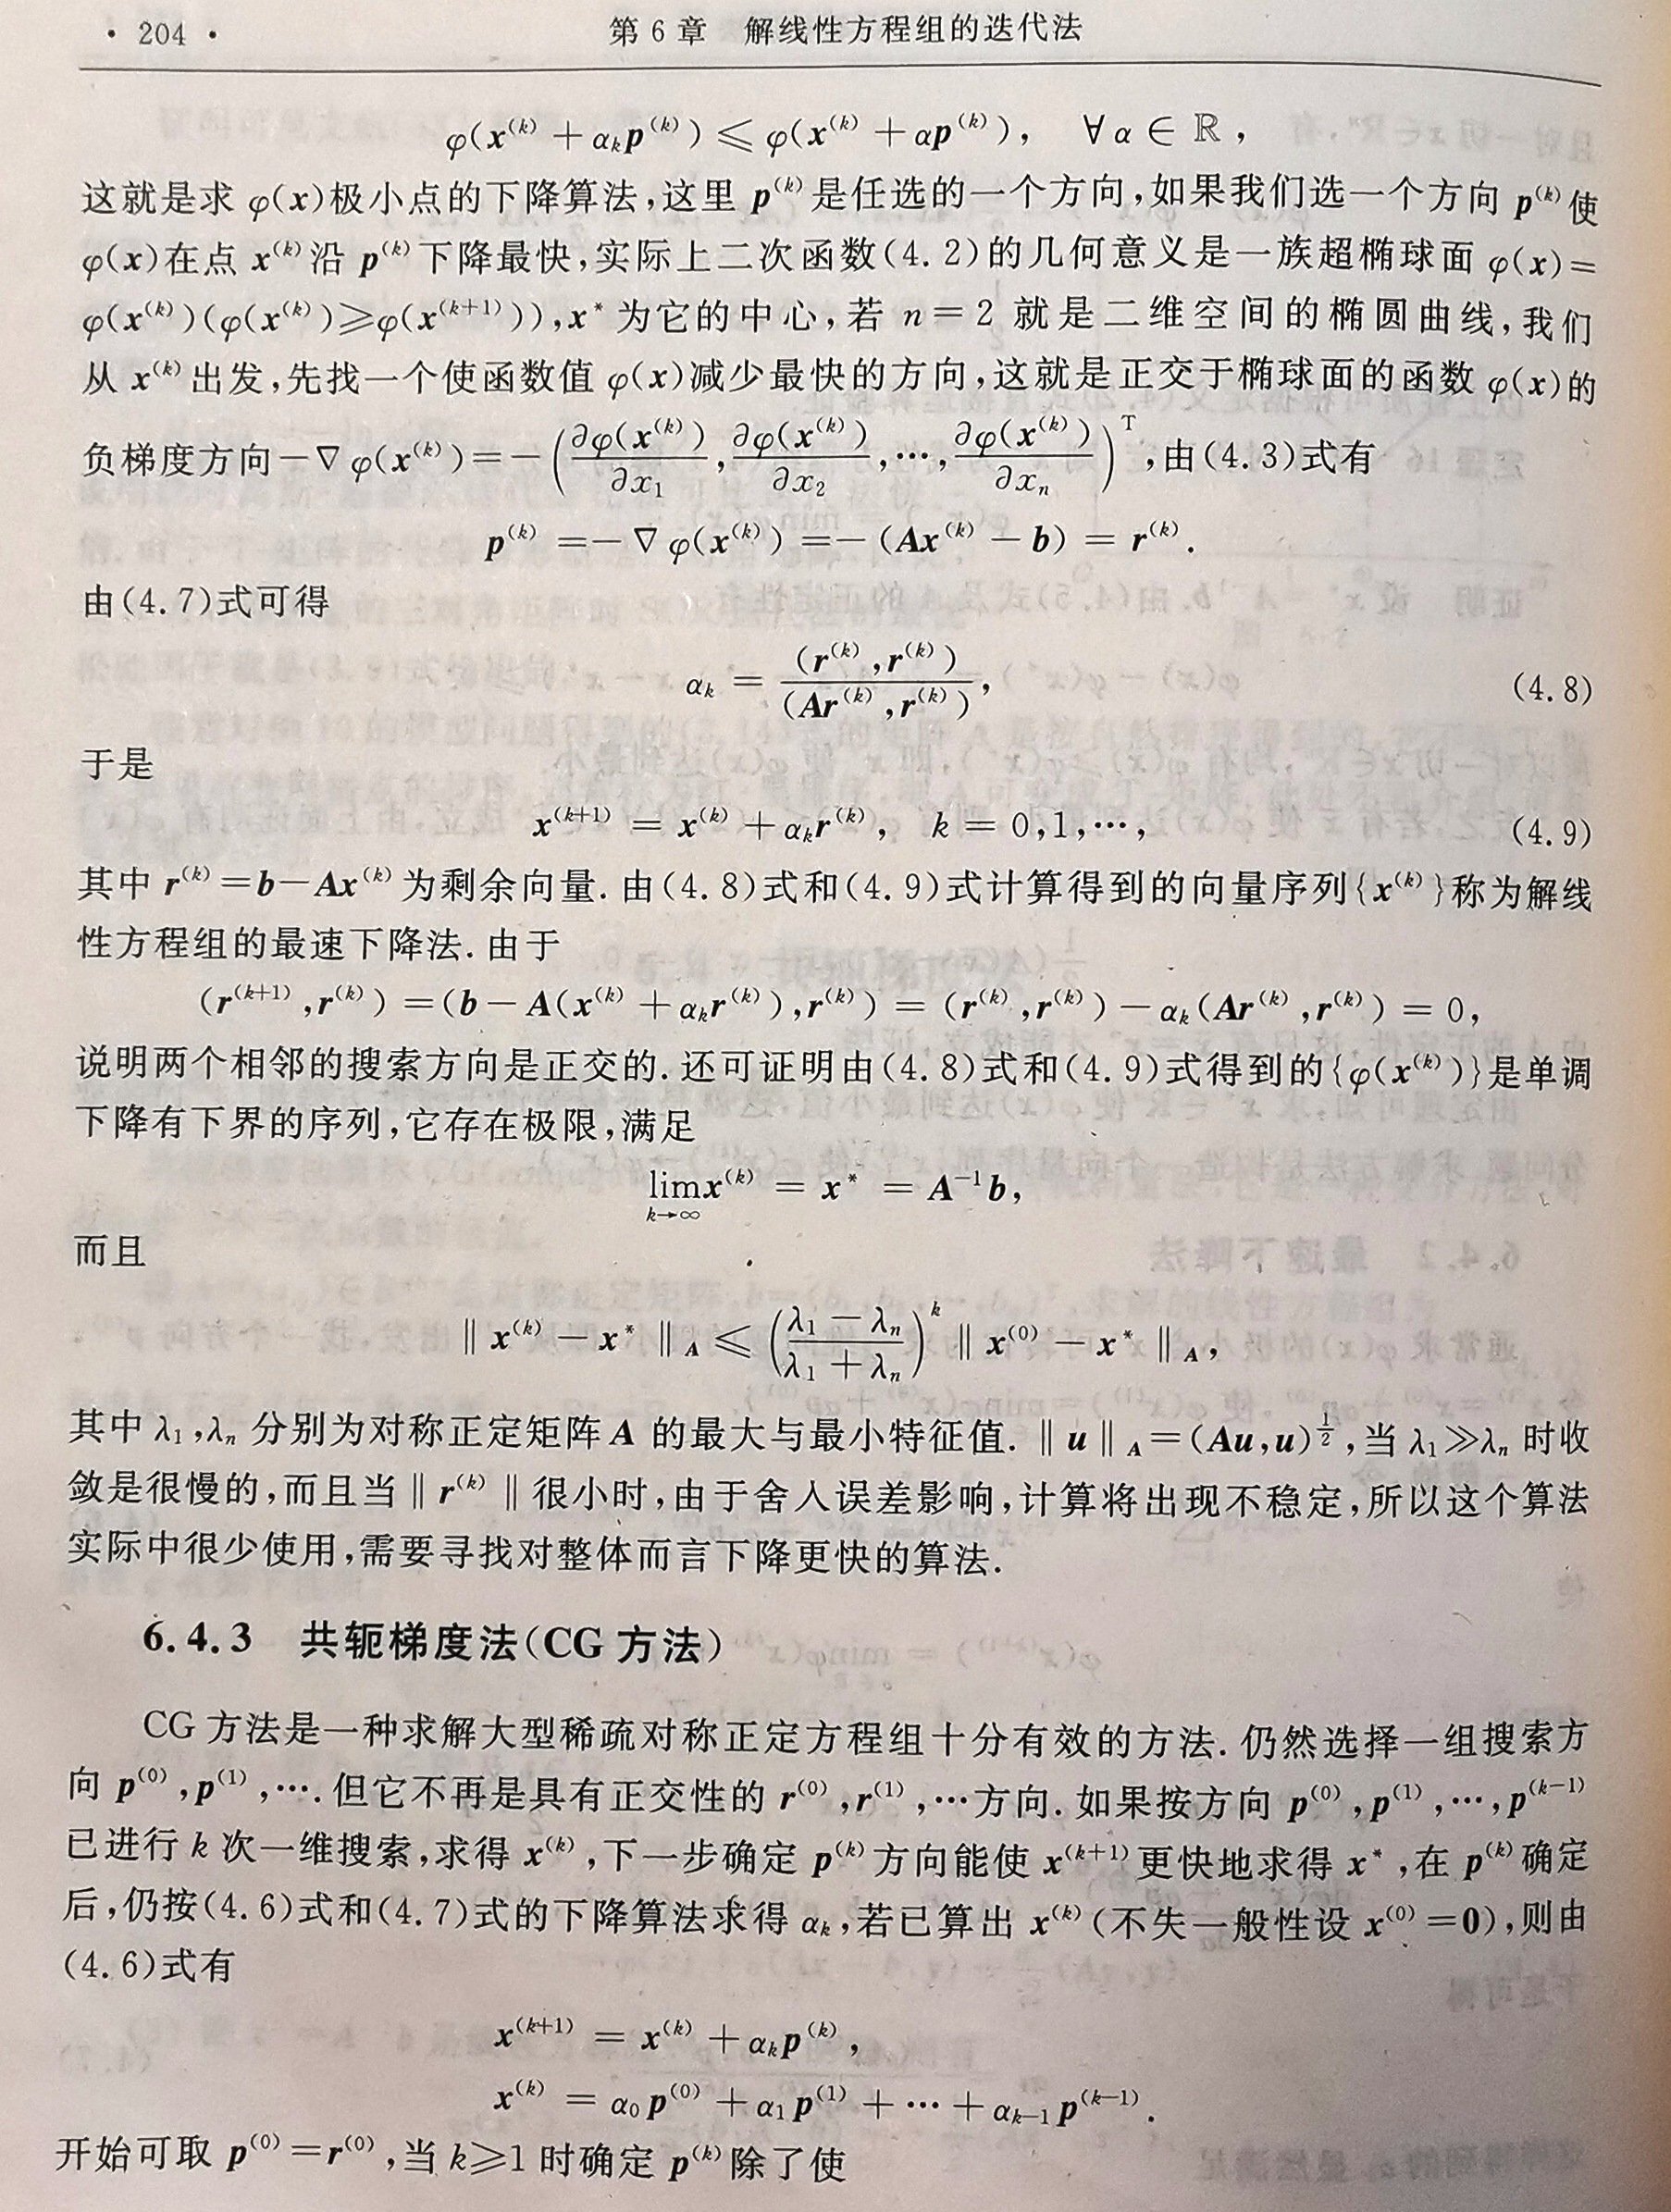 · 204 ·    第 6 章　解线性方程组的迭代法
φ(x^(k) + α_k p^(k)) ≤ φ(x^(k) + αp^(k)),　∀ α ∈ ℝ,
这就是求 φ(x)极小点的下降算法,这里 p^(k) 是任选的一个方向,如果我们选一个方向 p^(k) 使
φ(x)在点 x^(k) 沿 p^(k) 下降最快,实际上二次函数(4.2)的几何意义是一族超椭球面 φ(x)=
φ(x^(k))(φ(x^(k))≥φ(x^(k+1))),x* 为它的中心,若 n=2 就是二维空间的椭圆曲线,我们
从 x^(k) 出发,先找一个使函数值 φ(x)减少最快的方向,这就是正交于椭球面的函数 φ(x)的
负梯度方向−∇φ(x^(k))=−(∂φ(x^(k))/∂x_1, ∂φ(x^(k))/∂x_2, …, ∂φ(x^(k))/∂x_n)^T,由(4.3)式有
p^(k) =−∇φ(x^(k)) =−(Ax^(k) − b) = r^(k).
由(4.7)式可得
α_k = (r^(k),r^(k))/(Ar^(k),r^(k)),    (4.8)
于是
x^(k+1) = x^(k) + α_k r^(k),　k = 0,1,…,    (4.9)
其中 r^(k)=b−Ax^(k) 为剩余向量. 由(4.8)式和(4.9)式计算得到的向量序列{x^(k)}称为解线
性方程组的最速下降法. 由于
(r^(k+1),r^(k)) =(b − A(x^(k) + α_k r^(k)),r^(k)) = (r^(k),r^(k)) − α_k(Ar^(k),r^(k)) = 0,
说明两个相邻的搜索方向是正交的. 还可证明由(4.8)式和(4.9)式得到的{φ(x^(k))}是单调
下降有下界的序列,它存在极限,满足
lim_{k→∞} x^(k) = x* = A^−1 b,
而且
‖ x^(k) − x* ‖_A ≤ ((λ_1 − λ_n)/(λ_1 + λ_n))^k ‖ x^(0) − x* ‖_A,
其中 λ_1,λ_n 分别为对称正定矩阵 A 的最大与最小特征值. ‖ u ‖_A=(Au,u)^(1/2),当 λ_1≫λ_n 时收
敛是很慢的,而且当‖ r^(k) ‖很小时,由于舍入误差影响,计算将出现不稳定,所以这个算法
实际中很少使用,需要寻找对整体而言下降更快的算法.
6.4.3　共轭梯度法(CG 方法)
CG 方法是一种求解大型稀疏对称正定方程组十分有效的方法. 仍然选择一组搜索方
向 p^(0),p^(1),…. 但它不再是具有正交性的 r^(0),r^(1),…方向. 如果按方向 p^(0),p^(1),…,p^(k−1)
已进行 k 次一维搜索,求得 x^(k),下一步确定 p^(k) 方向能使 x^(k+1) 更快地求得 x*,在 p^(k) 确定
后,仍按(4.6)式和(4.7)式的下降算法求得 α_k,若已算出 x^(k)(不失一般性设 x^(0)=0),则由
(4.6)式有
x^(k+1) = x^(k) + α_k p^(k),
x^(k) = α_0 p^(0) + α_1 p^(1) + … + α_{k−1} p^(k−1).
开始可取 p^(0)=r^(0),当 k≥1 时确定 p^(k) 除了使